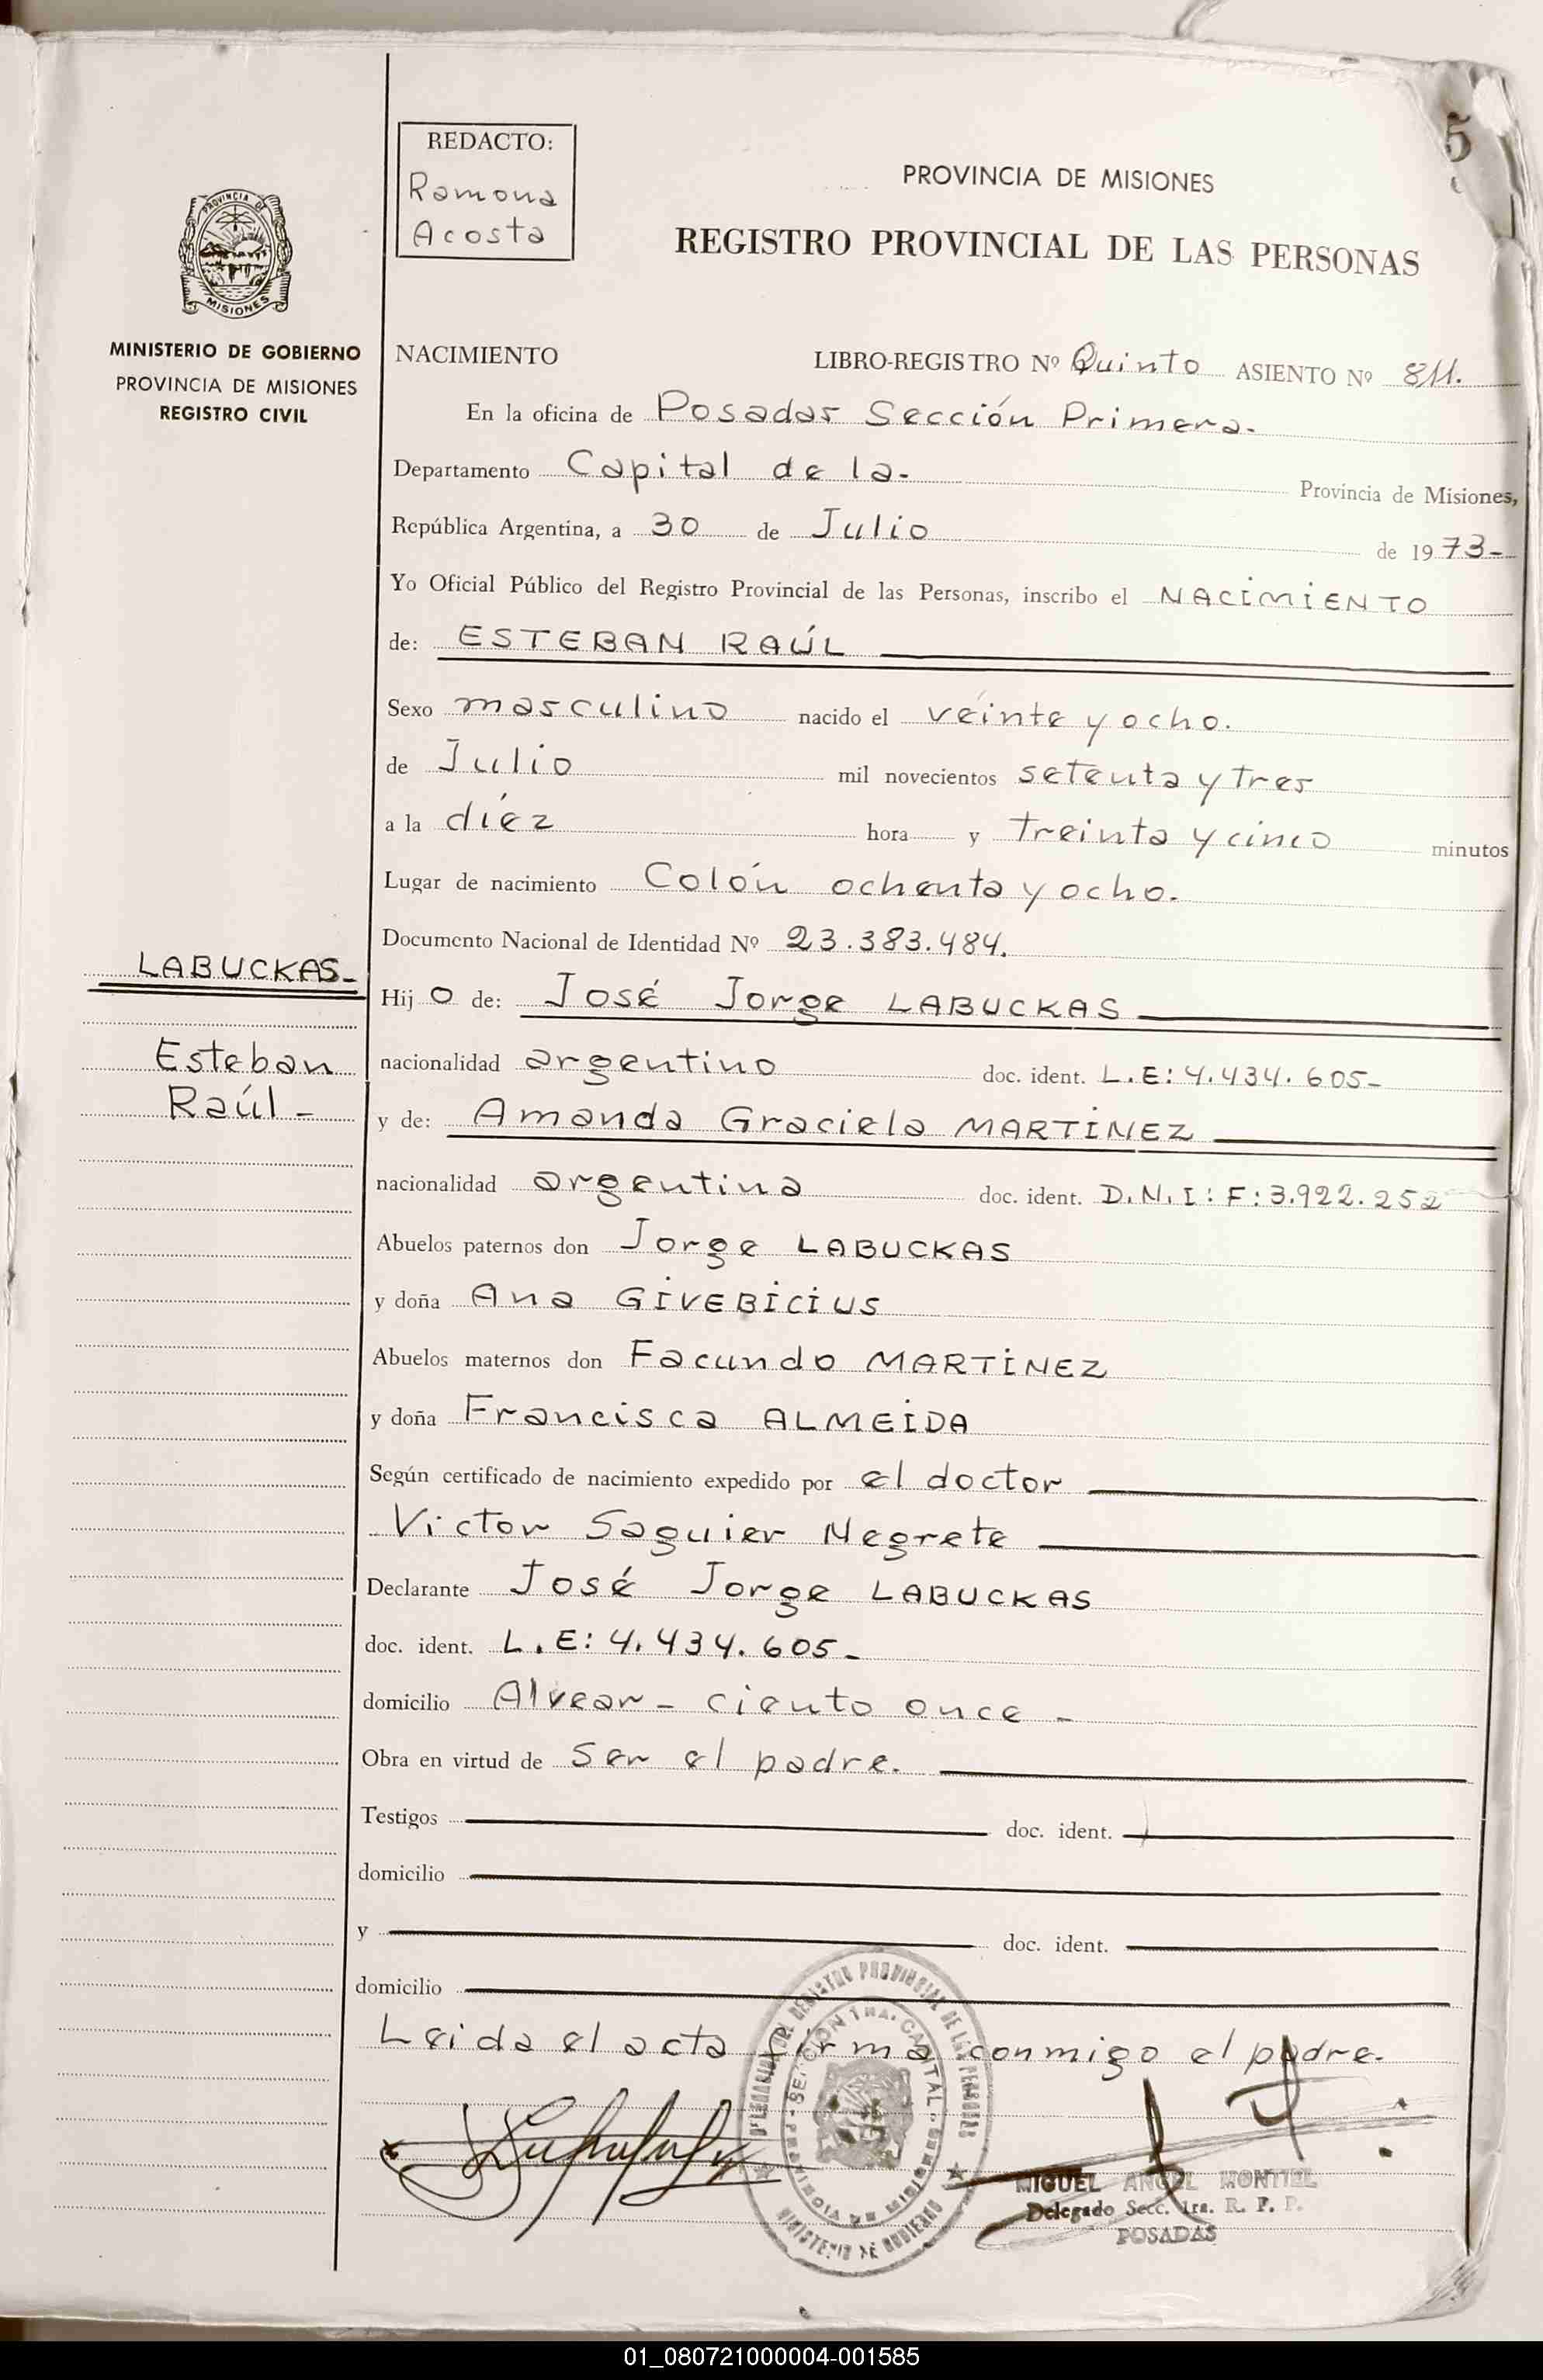 5
REDACTO:
Ramona
Acosta
PROVINCIA DE MISIONES
REGISTRO PROVINCIAL DE LAS PERSONAS
PROVINCIA DE
MISIONES
MINISTERIO DE GOBIERNO
PROVINCIA DE MISIONES
REGISTRO CIVIL
NACIMIENTO LIBRO-REGISTRO Nº Quinto ASIENTO Nº 811.
En la oficina de Posadas Sección Primera.
Departamento Capital de la- Provincia de Misiones,
República Argentina, a 30 de Julio de 1973-
Yo Oficial Público del Registro Provincial de las Personas, inscribo el NACIMIENTO
de: ESTEBAN RAÚL
Sexo masculino nacido el veinte y ocho.
de Julio mil novecientos setenta y tres
a la díez hora y treinta y cinco minutos
Lugar de nacimiento Colón ochenta y ocho.
Documento Nacional de Identidad Nº 23.383.484.
LABUCKAS-
Hijo de: José Jorge LABUCKAS
Esteban
Raúl-
nacionalidad argentino doc. ident. L.E: 4.434.605-
y de: Amanda Graciela MARTINEZ
nacionalidad argentina doc. ident. D.N.I: F: 3.922.252
Abuelos paternos don Jorge LABUCKAS
y doña Ana GIVEBICIUS
Abuelos maternos don Facundo MARTINEZ
y doña Francisca ALMEIDA
Según certificado de nacimiento expedido por el doctor
Victor Saguier Negrete
Declarante José Jorge LABUCKAS
doc. ident. L.E: 4.434.605-
domicilio Alvear- ciento once-
Obra en virtud de ser el padre.
Testigos doc. ident.
domicilio
y doc. ident.
domicilio
Leida el acta firma conmigo el padre.
DELEGACION DEL REGISTRO PROVINCIAL DE LAS PERSONAS
SECCION 1RA. CAPITAL
PROVINCIA DE MISIONES
MINISTERIO DE GOBIERNO
MIGUEL ANGEL MONTIEL
Delegado Secc. 1ra. R. P. P.
POSADAS
01_080721000004-001585